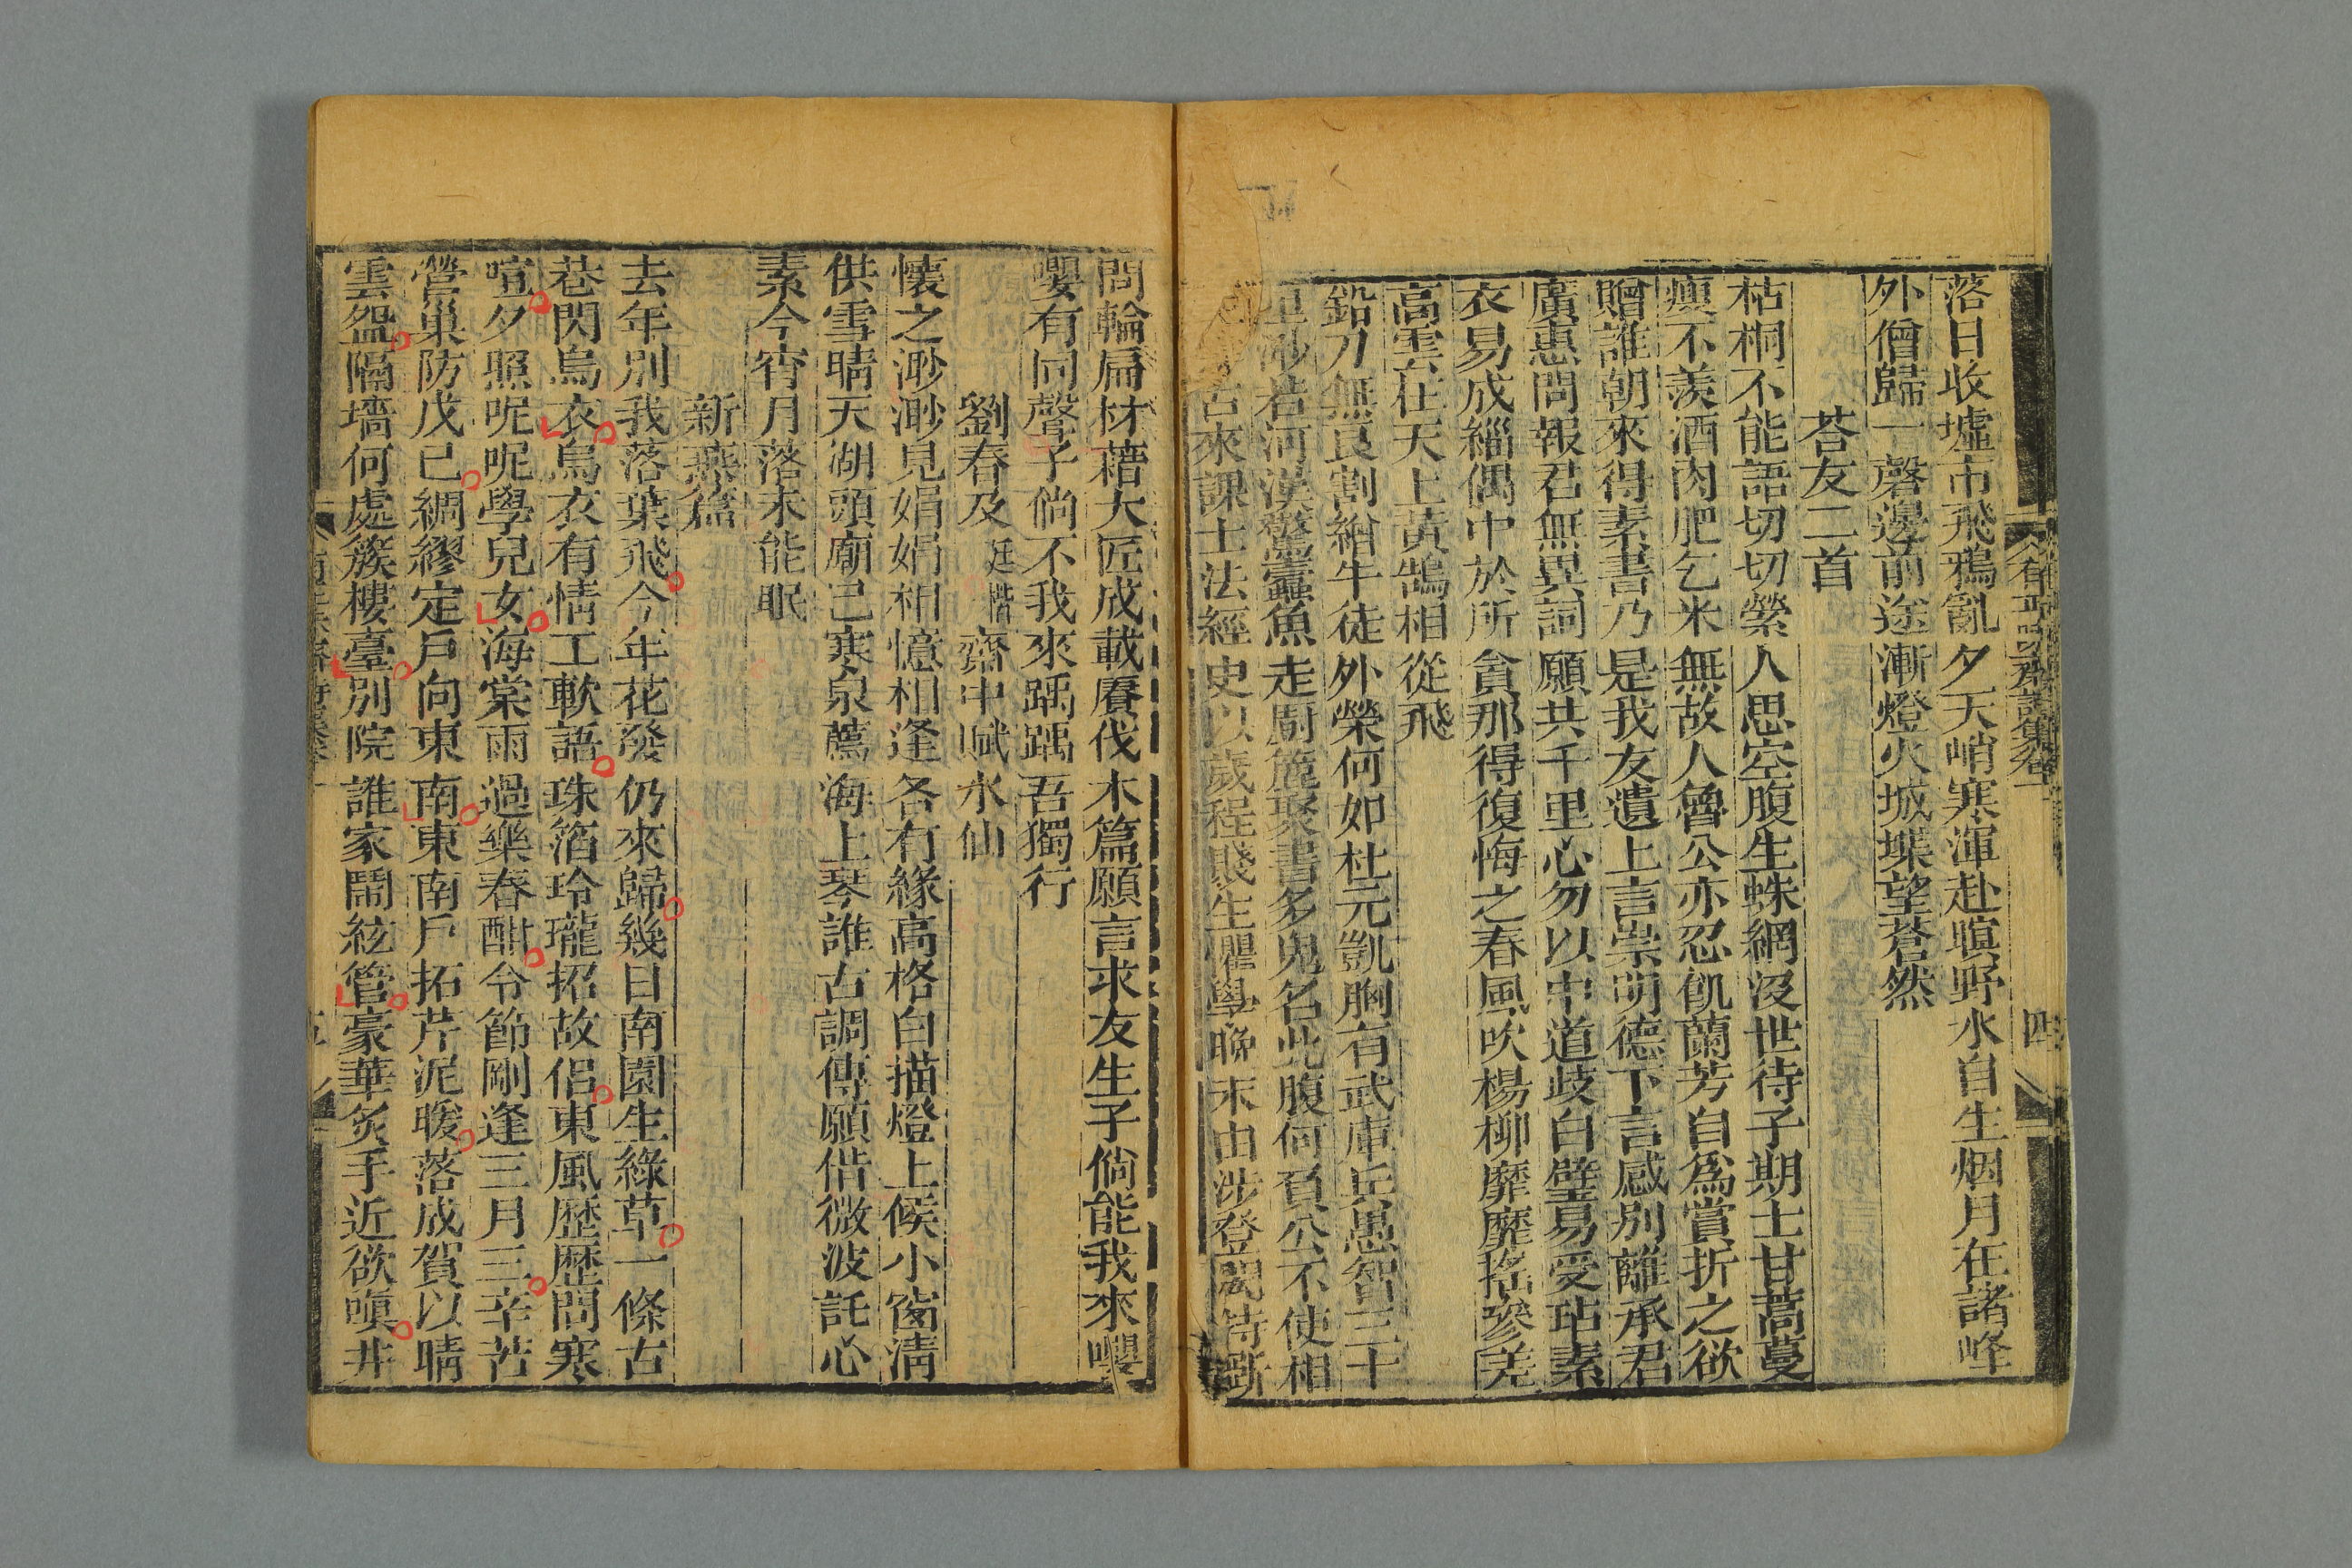 落日收墟市飛鴉亂夕天峭寒渾赴暝野水自生烟月在諸峰
外僧歸一磬邊前途漸燈火城堞望蒼然
荅友二首
枯桐不能語切切縈人思空腹生蛛網沒世待子期士甘蒿蔓
瘦不羨酒肉肥乞米無故人魯公亦忍飢蘭芳自爲賞折之欲
贈誰朝來得素書乃是我友遺上言崇明德下言感別離承君
廣惠問報君無異詞願共千里心勿以中道歧白璧易受玷素
衣易成緇偶中於所貪那得復悔之春風吹楊柳靡靡搖參差
高雲在天上黃鵠相從飛
鉛刀無良割繪牛徒外榮何如杜元凱胸有武庫兵愚智三十
里渺若河漢驚蠹魚走廚簏聚書多鬼名此腹何負公不使相
古來課士法經史以歲程賤生懼學晚末由涉登閎待斲
四
問輪扁材藉大匠成載賡伐木篇願言求友生子倘能我來嚶
嚶有同聲子倘不我來踽踽吾獨行
劉春及廷楷齋中賦水仙
懷之渺渺見娟娟相憶相逢各有緣高格白描燈上候小窗清
供雪晴天湖頭廟已寒泉薦海上琴誰古調傳願偕微波託心
素今宵月落未能眠
新燕篇
去年別我落葉飛今年花發仍來歸幾日南園生綠草一條古
巷閃烏衣烏衣有情工軟語珠箔玲瓏招故侶東風歷歷問寒
喧夕照呢呢學兒女海棠雨過樂春酣令節剛逢三月三辛苦
營巢防戊己綢繆定戶向東南東南戶拓芹泥暖落成賀以晴
雲盌隔墻何處簇樓臺別院誰家鬧絃管豪華炙手近欲嗔井